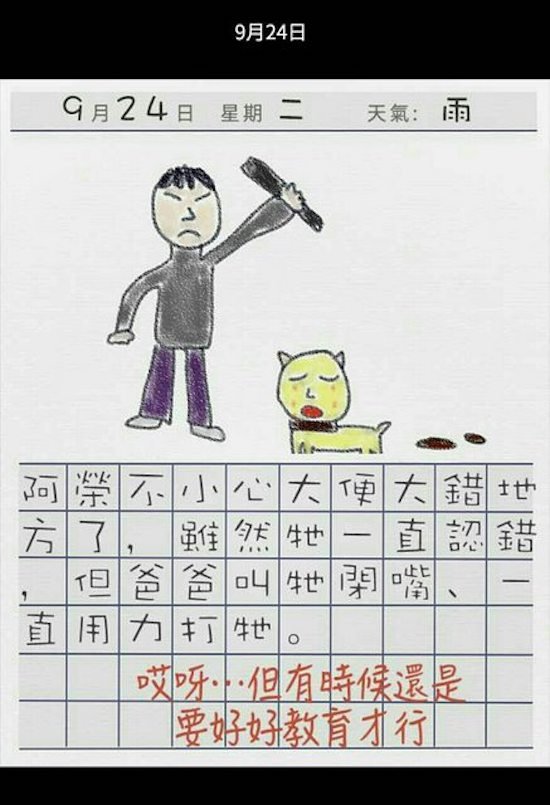 9月24日
9月24日 星期 二 天氣: 雨
阿榮不小心大便大錯地
方了，雖然牠一直認錯
，但爸爸叫牠閉嘴、一
直用力打牠。
哎呀…但有時候還是
要好好教育才行